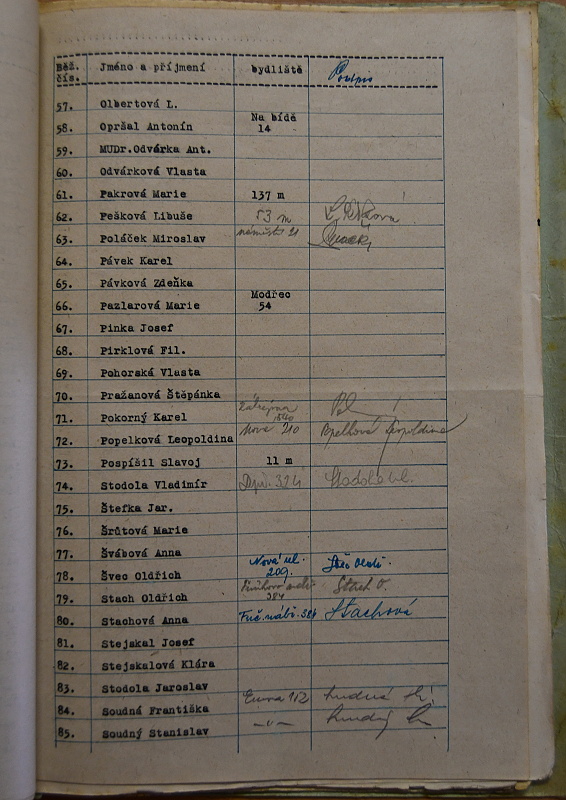 Běž. čís. Jméno a příjmení bydliště Podpis
57. Olbertová L.
58. Opršal Antonín Na bídě 14
59. MUDr.Odvárka Ant.
60. Odvárková Vlasta
61. Pakrová Marie 137 m
62. Pešková Libuše 53 m
63. Poláček Miroslav náměstí 21
64. Pávek Karel
65. Pávková Zdeňka
66. Pazlarová Marie Modřec 54
67. Pinka Josef
68. Pirklová Fil.
69. Pohorská Vlasta
70. Pražanová Štěpánka
71. Pokorný Karel
72. Popelková Leopoldina Nová 210 Popelková Leopoldina
73. Pospíšil Slavoj 11 m
74. Stodola Vladimír 324 Stodola Vl.
75. Štefka Jar.
76. Šrůtová Marie
77. Švábová Anna
78. Švec Oldřich Nová ul. 209.
79. Stach Oldřich 384 Stach O.
80. Stachová Anna Fuč. nábř. 384 Stachová
81. Stejskal Josef
82. Stejskalová Klára
83. Stodola Jaroslav
84. Soudná Františka
85. Soudný Stanislav -"-